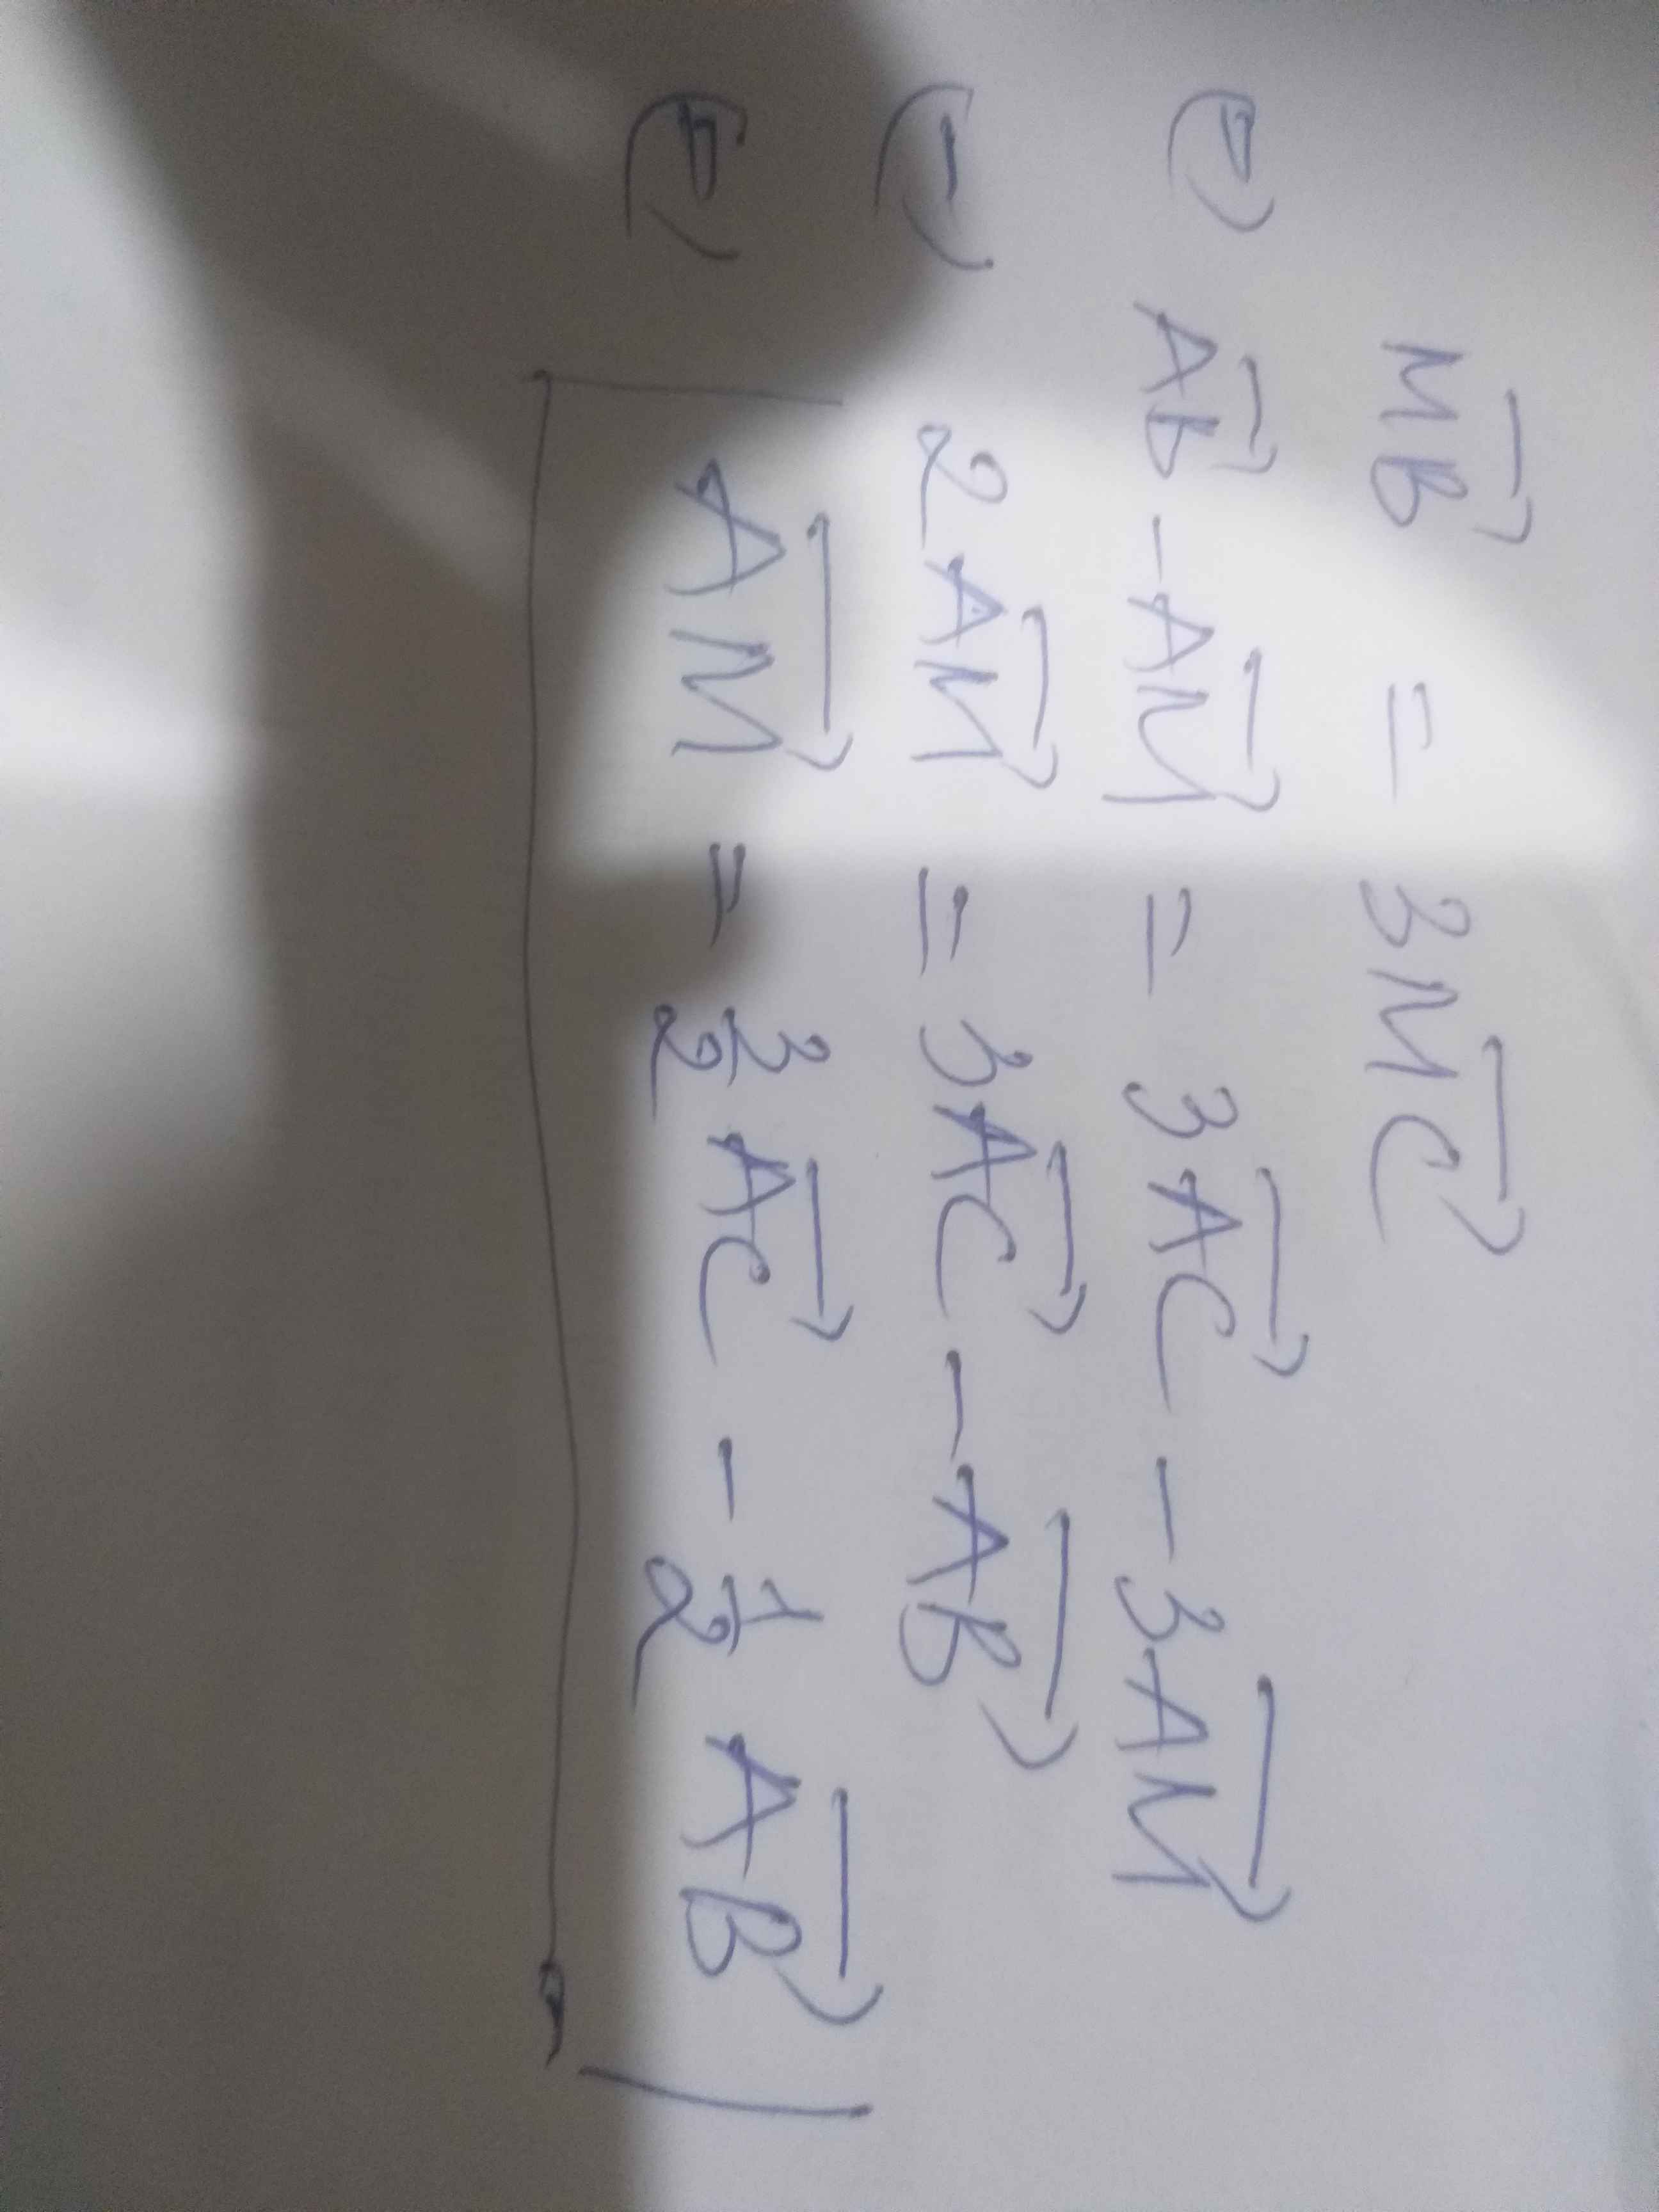 $\overrightarrow{MB} = 3\overrightarrow{MC}$
$\Leftrightarrow \overrightarrow{AB} - \overrightarrow{AM} = 3\overrightarrow{AC} - 3\overrightarrow{AM}$
$\Leftrightarrow 2\overrightarrow{AM} = 3\overrightarrow{AC} - \overrightarrow{AB}$
$\Leftrightarrow \overrightarrow{AM} = \frac{3}{2}\overrightarrow{AC} - \frac{1}{2}\overrightarrow{AB}$